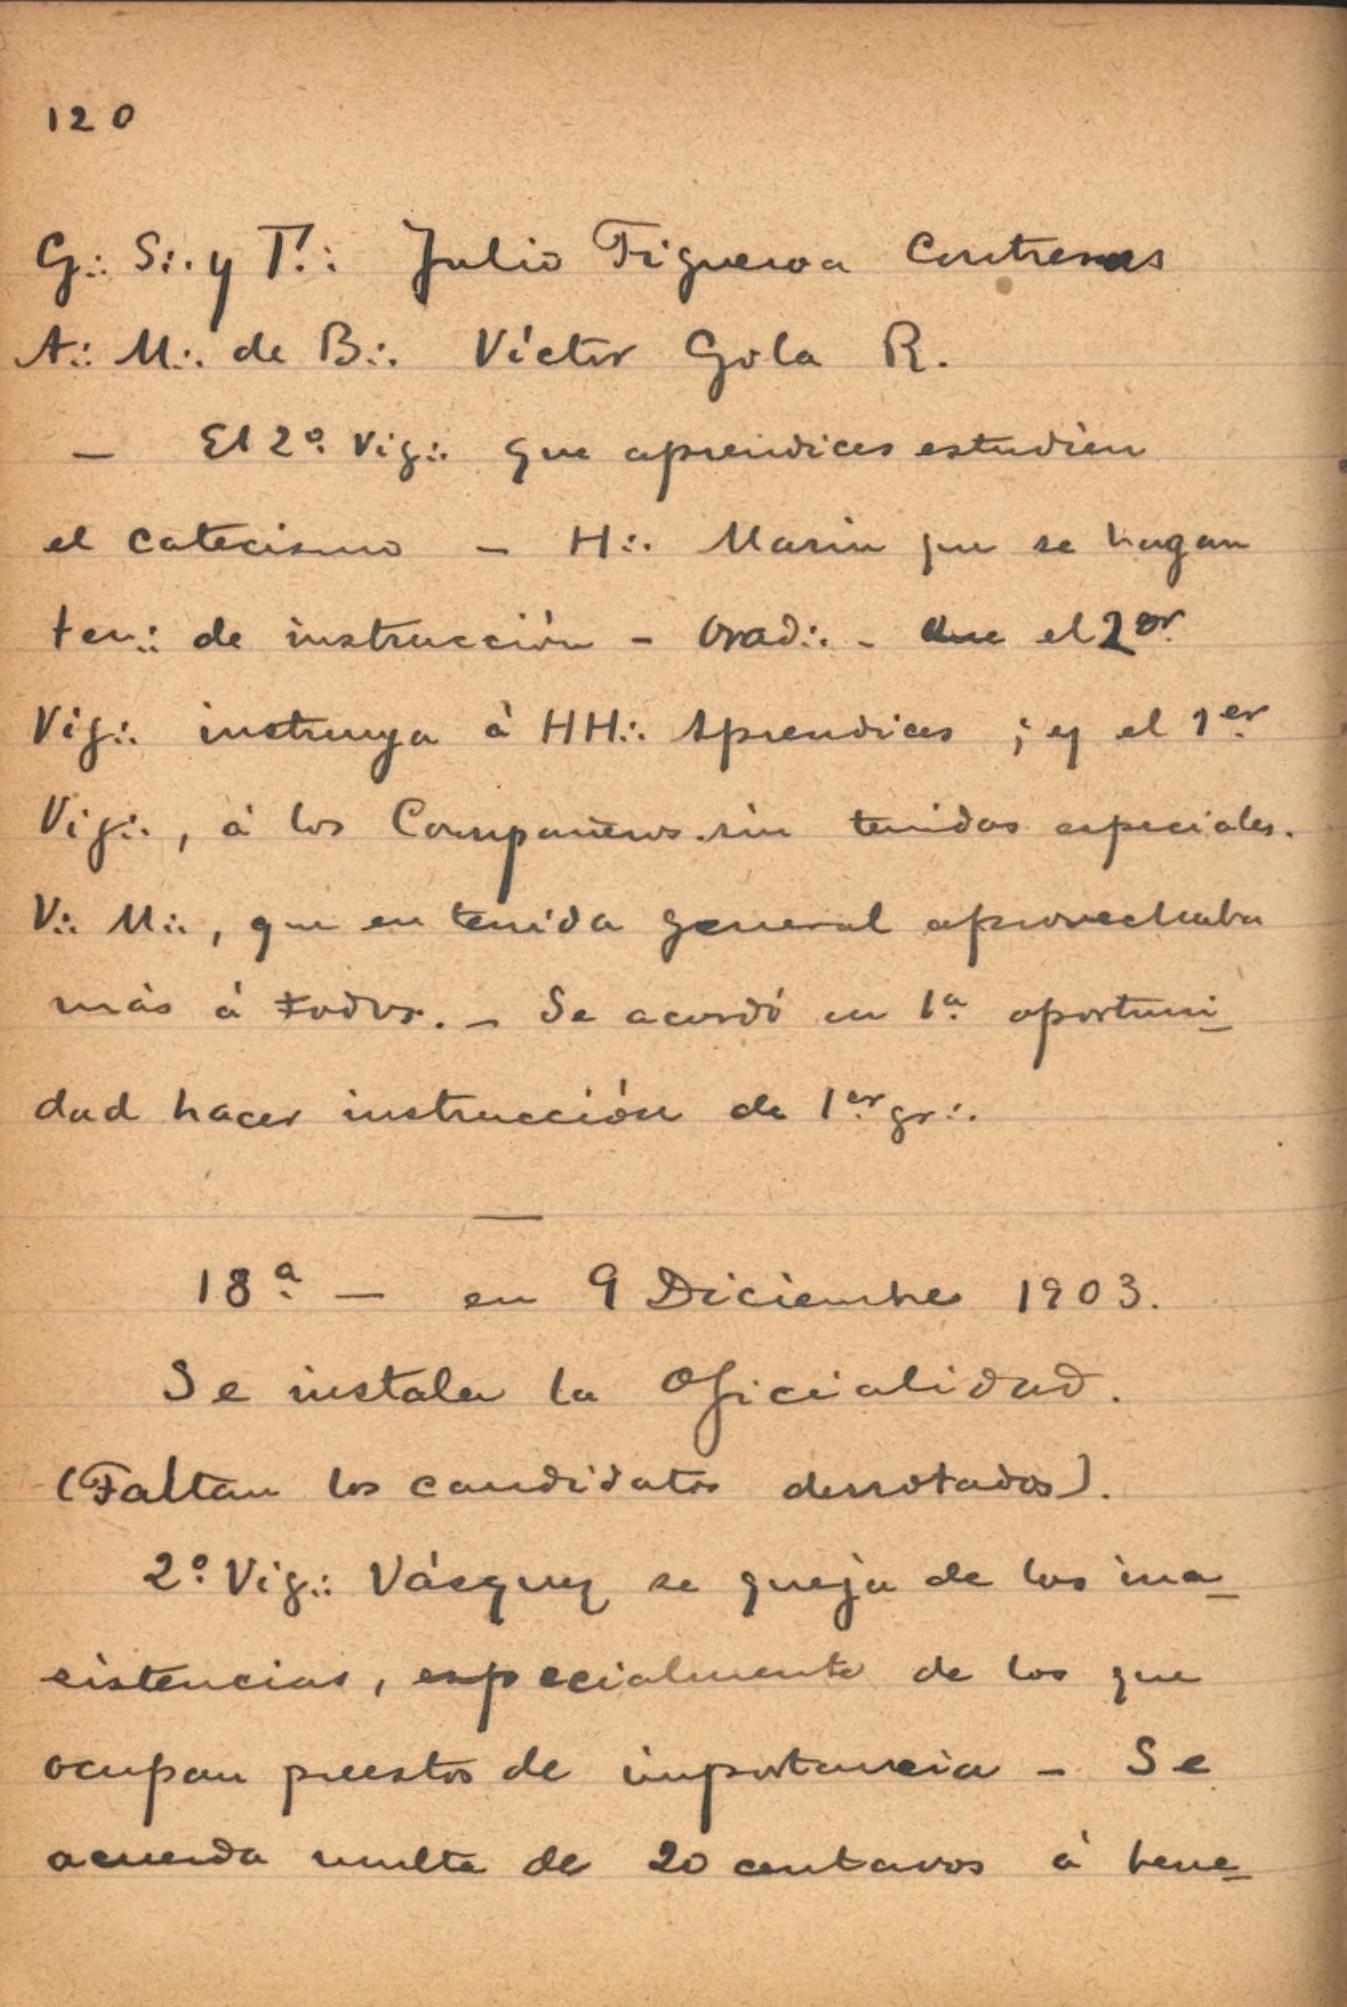 120
G∴ S∴ y T∴ Julio Figueroa Contreras
A∴ M∴ de B∴ Víctor Gola R.
— El 2º Vig∴ que aprendices estudien
el catecismo — H∴ Marin que se hagan
ten∴ de instrucción - Orad∴ - Que el 2or
Vig∴ instruya à HH∴ Aprendices ; y el 1er
Vig∴, á los Compañeros sin tenidas especiales.
V∴ M∴, que en tenida general aprovechaba
más á todos. — Se acordó en 1ª oportuni-
dad hacer instrucción de 1er gr∴
—
18ª — en 9 Diciembre 1903.
Se instala la Oficialidad.
(Faltan los candidatos derrotados).
2º Vig∴ Vásquez se queja de las ina-
sistencias, especialmente de los que
ocupan puestos de importancia — Se
acuerda multa de 20 centavos á bene-